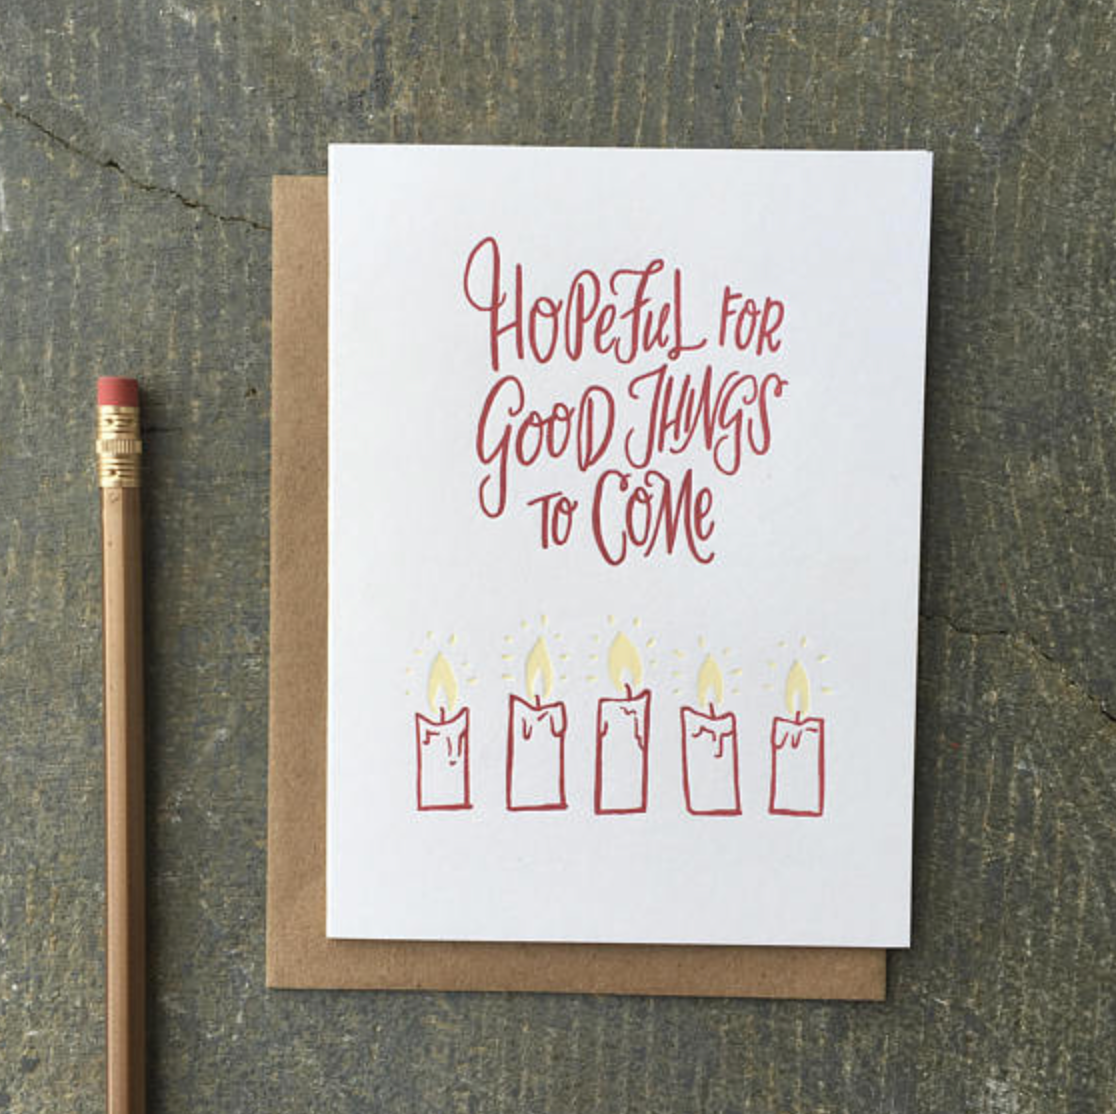 HoPeFuL FOR
GooD THINGS
TO CoMe